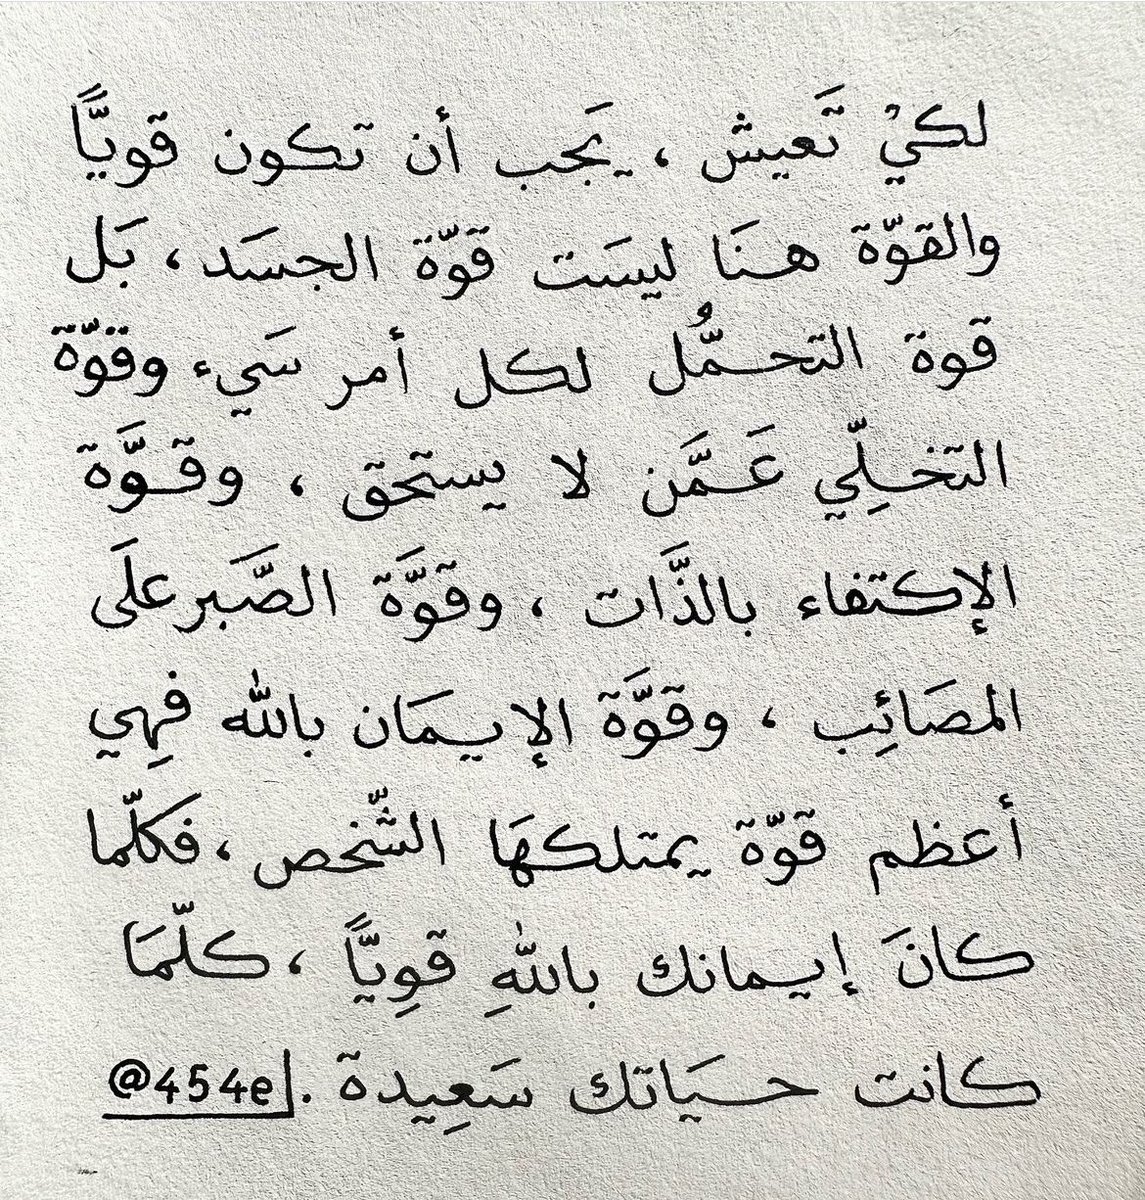 لكيْ تَعيش ، يَجب أن تكون قويًّا
والقوّة هنَا ليسَت قوّة الجسَد ، بَل
قوة التحمُّل لكل أمر سَيء وقوّة
التخلِّي عَمَّن لا يستحق ، وقوَّة
الإكتفاء بالذَّات ، وقوَّة الصَّبر علَى
المصَائِب ، وقوَّة الإيمَان بالله فهِي
أعظم قوّة يمتلكهَا الشّخص ، فكلّما
كانَ إيمانك باللهِ قوِيًّا ، كلّمَا
كانت حيَاتك سَعِيدة . @454e